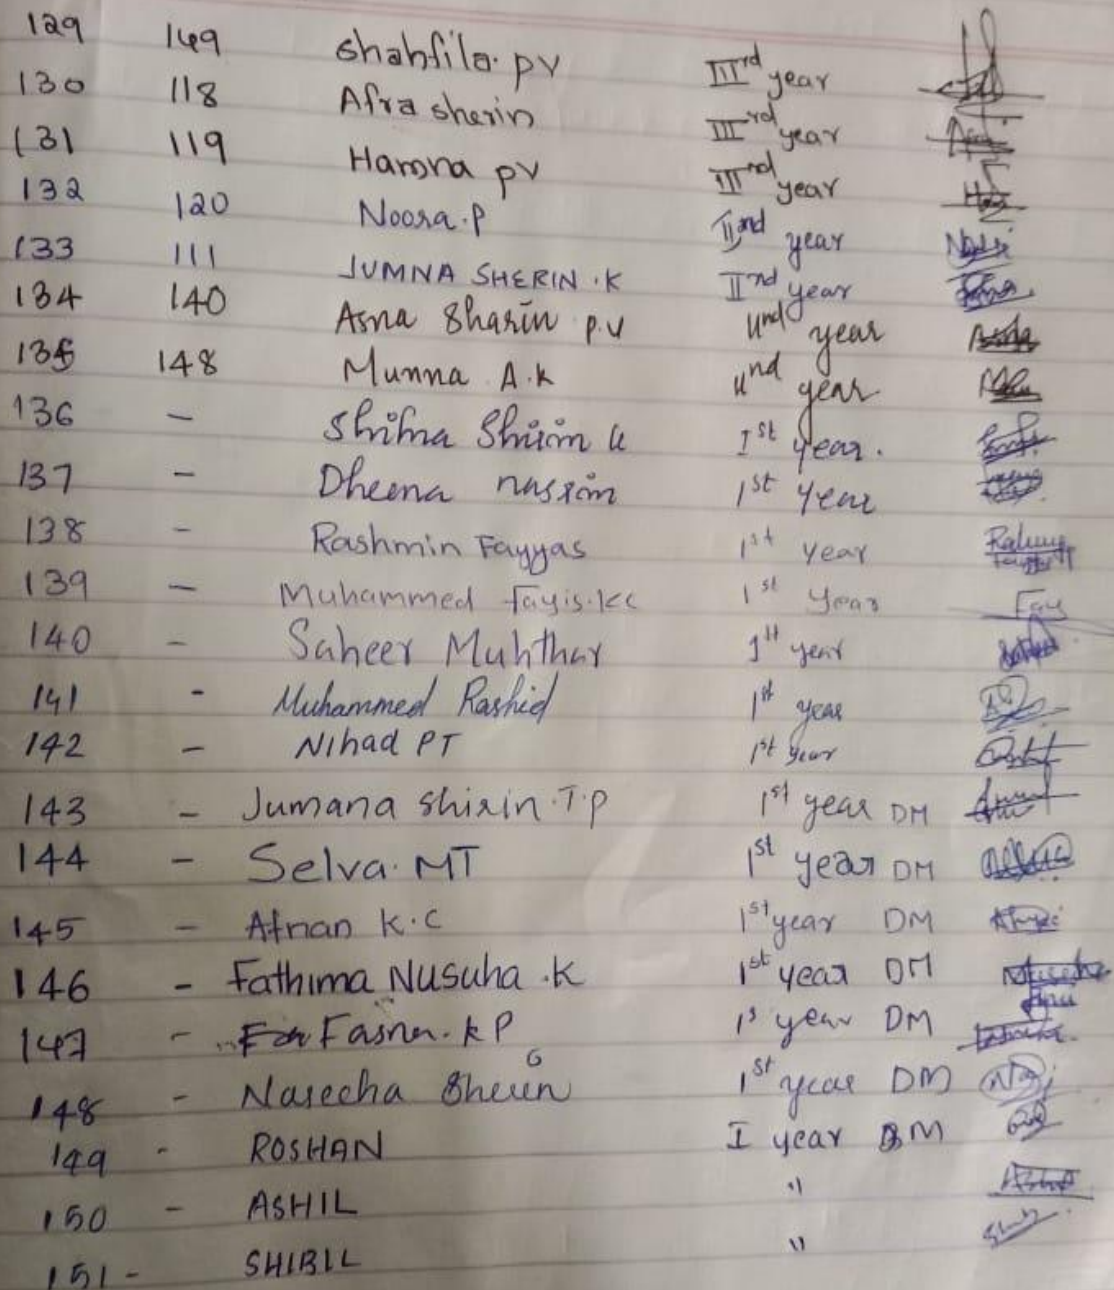 129 149 Shahfila. PV IIIrd year
130 118 Afra sherin IIIrd year
131 119 Hamna PV IIIrd year
132 120 Noora.P IInd year
133 111 JUMNA SHERIN.K IInd year
134 140 Asna Sharin P.V IInd year
135 148 Munna A.K IInd year
136 - Shirin Ist year.
137 - Dheena nasrin 1st Year
138 - Rashmin Fayyas 1st Year
139 - Muhammed Fayis.kc 1st Year Fay
140 - Saheer Muhthar 1st year
141 - Muhammed Rashid 1st year
142 - Nihad PT 1st year
143 - Jumana Shirin.T.P 1st year DM
144 - Selva.MT 1st year DM
145 - Afnan K.C 1st year DM
146 - Fathima Nusuha.K 1st year DM
147 - Fasna.KP 1s year DM
148 - Naseeha Sherin 1st year DM
149 - ROSHAN I year BM
150 - ASHIL "
151 - SHIBIL "